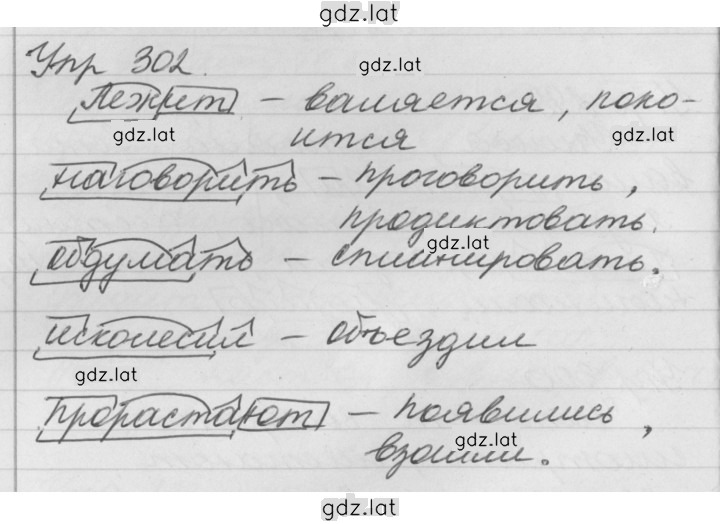 gdz.lat
Упр 302.
gdz.lat
Лежит – валяется, поко-
gdz.lat
ится
gdz.lat
наговорить – проговорить,
продиктовать.
gdz.lat
обдумать – спланировать.
исколесил – объездил
gdz.lat
прорастают – появились,
взошли.
gdz.lat
gdz.lat